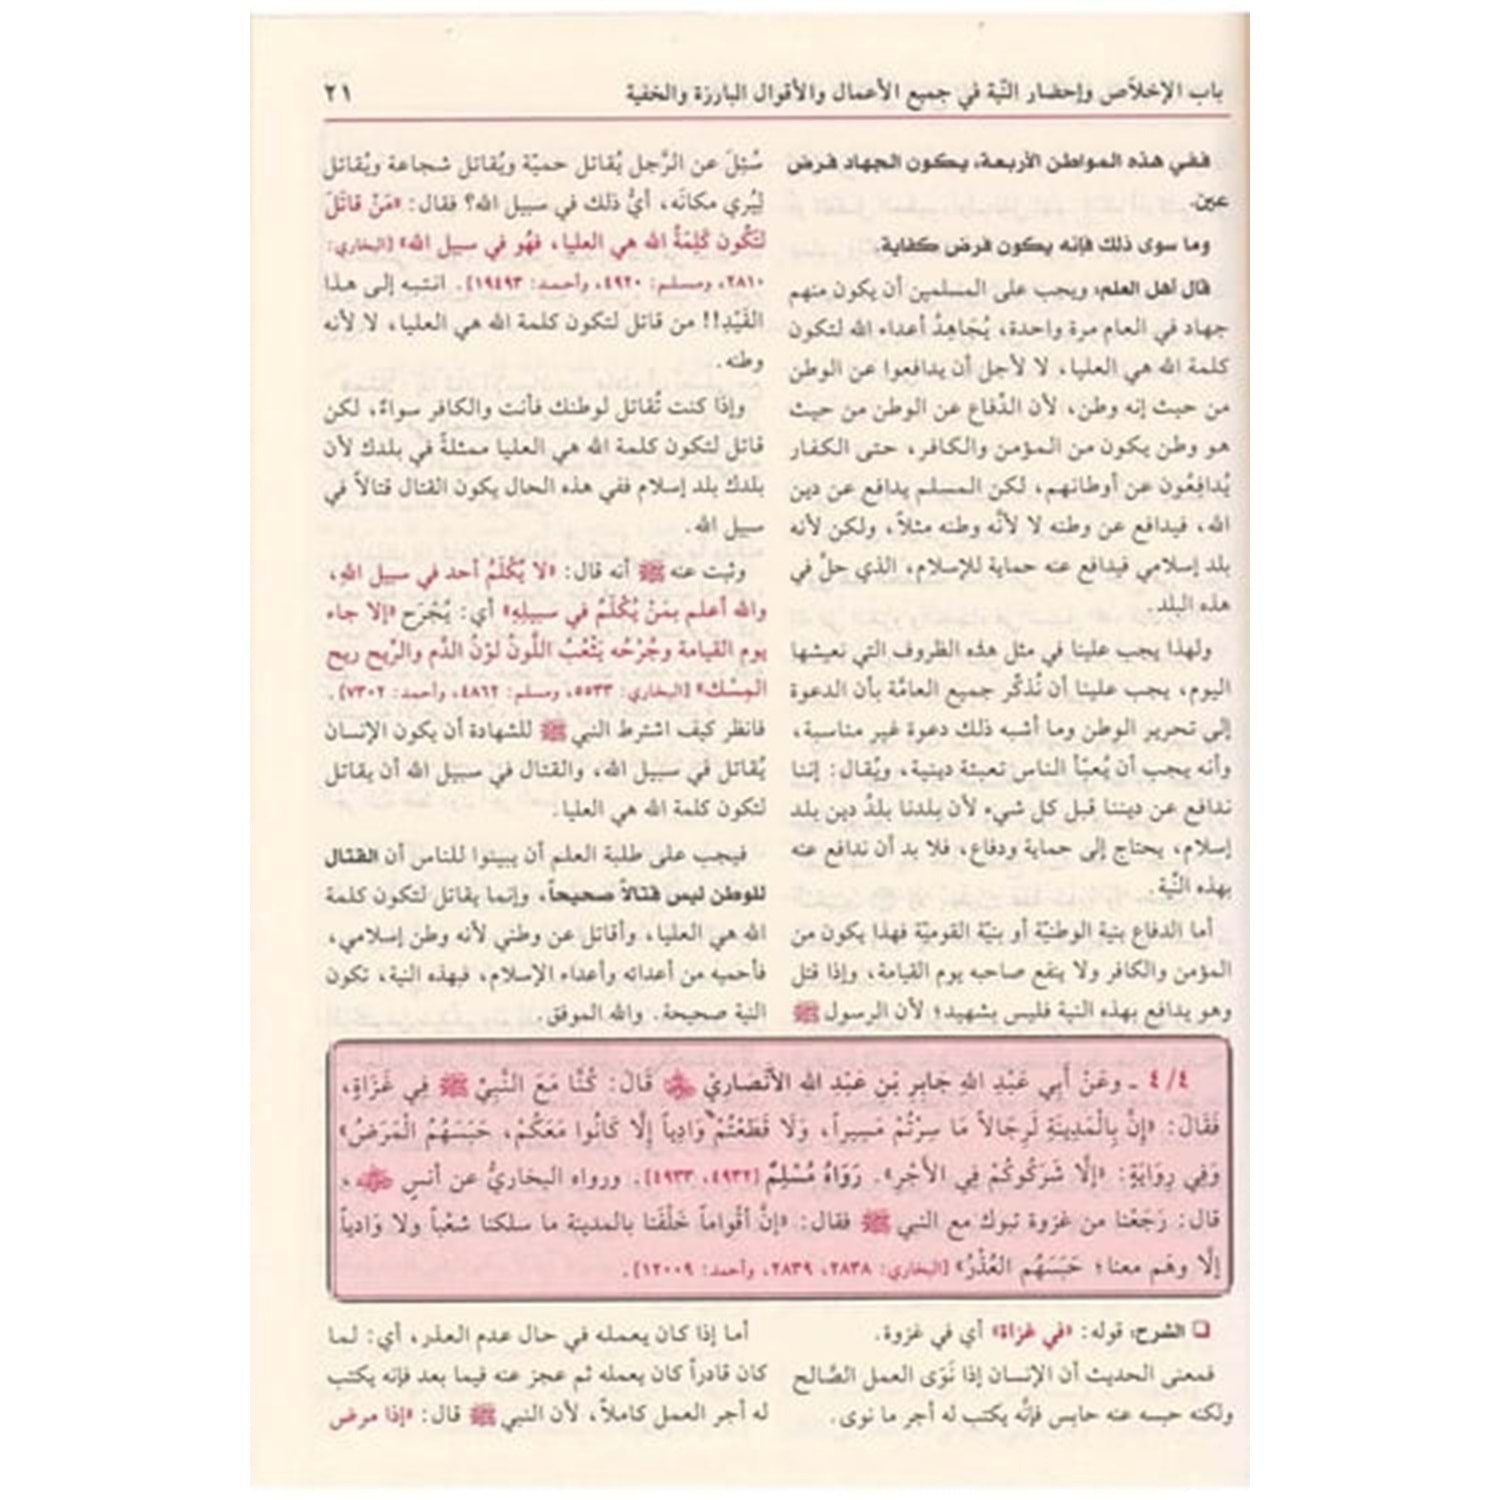 باب الإخلاص وإحضار النّية في جميع الأعمال والأقوال البارزة والخفية ٢١
ففي هذه المواطن الأربعة، يكون الجهاد فرض
عين.
وما سوى ذلك فإنه يكون فرض كفاية.
قال أهل العلم: ويجب على المسلمين أن يكون منهم
جهاد في العام مرة واحدة، يُجَاهِدُ أعداء الله لتكون
كلمة الله هي العليا، لا لأجل أن يدافعوا عن الوطن
من حيث إنه وطن، لأن الدِّفاع عن الوطن من حيث
هو وطن يكون من المؤمن والكافر، حتى الكفار
يُدافِعُون عن أوطانهم، لكن المسلم يدافع عن دين
الله، فيدافع عن وطنه لا لأنَّه وطنه مثلاً، ولكن لأنه
بلد إسلامي فيدافع عنه حماية للإسلام، الذي حلَّ في
هذه البلد.
ولهذا يجب علينا في مثل هذه الظروف التي نعيشها
اليوم، يجب علينا أن نُذكِّر جميع العامَّة بأن الدعوة
إلى تحرير الوطن وما أشبه ذلك دعوة غير مناسبة،
وأنه يجب أن يُعبَّأ الناس تعبئة دينية، ويُقال: إننا
ندافع عن ديننا قبل كل شيء لأن بلدنا بلدُ دين بلد
إسلام، يحتاج إلى حماية ودفاع، فلا بد أن ندافع عنه
بهذه النِّية.
أما الدفاع بنية الوطنيّة أو بنيّة القوميّة فهذا يكون من
المؤمن والكافر ولا ينفع صاحبه يوم القيامة، وإذا قتل
وهو يدافع بهذه النية فليس بشهيد؛ لأن الرسول ﷺ
سُئِلَ عن الرَّجل يُقاتل حميّة ويُقاتل شجاعة ويُقاتل
لِيُري مكانَه، أيُّ ذلك في سبيل الله؟ فقال: «مَنْ قاتَلَ
لتَكُون كَلِمَةُ الله هي العليا، فهُو في سبيل الله» [البخاري:
٢٨١٠، ومسلم: ٤٩٢٠، وأحمد: ١٩٤٩٣]. انتبه إلى هذا
القَيْدِ!! من قاتل لتكون كلمة الله هي العليا، لا لأنه
وطنه.
وإذا كنت تُقاتل لوطنك فأنت والكافر سواءٌ، لكن
قاتل لتكون كلمة الله هي العليا ممثلةً في بلدك لأن
بلدك بلد إسلام ففي هذه الحال يكون القتال قتالاً في
سبيل الله.
وثبت عنه ﷺ أنه قال: «لا يُكْلَمُ أحد في سبيل اللهِ،
والله أعلم بمَنْ يُكْلَمُ في سبيلِهِ» أي: يُجْرَح «إلا جاء
يوم القيامة وجُرْحُه يَثْعُبُ اللَّونُ لوْنُ الدَّم والرِّيح ريح
المِسْك» [البخاري: ٥٥٣٣، ومسلم: ٤٨٦٢، وأحمد: ٧٣٠٢].
فانظر كيف اشترط النبي ﷺ للشهادة أن يكون الإنسان
يُقاتل في سبيل الله، والقتال في سبيل الله أن يقاتل
لتكون كلمة الله هي العليا.
فيجب على طلبة العلم أن يبينوا للناس أن القتال
للوطن ليس قتالاً صحيحاً، وإنما يقاتل لتكون كلمة
الله هي العليا، وأقاتل عن وطني لأنه وطن إسلامي،
فأحميه من أعدائه وأعداء الإسلام، فبهذه النية، تكون
النية صحيحة. والله الموفق.
٤/٤ ـ وعَنْ أَبِي عَبْدِ اللهِ جَابِرِ بْنِ عَبْدِ الله الأنْصَاريْ ﷺ قَالَ: كُنَّا مَعَ النَّبِيِّ ﷺ فِي غَزَاةٍ،
فَقَالَ: «إنَّ بِالْمَدِينَةِ لَرِجَالاً مَا سِرْتُمْ مَسِيراً، وَلَا قَطَعْتُمْ وَادِياً إلَّا كَانُوا مَعَكُمْ، حَبَسَهُمُ الْمَرَضُ»
وَفِي رِوَايَةٍ: «إلَّا شَرَكُوكُمْ فِي الأَجْرِ». رَوَاهُ مُسْلِمٌ [٤٩٣٢، ٤٩٣٣]. ورواه البخاريُّ عن أنسٍ ،
قال: رَجَعْنا من غزوة تبوك مع النبي ﷺ فقال: «إنَّ أقْواماً خَلْفَنا بالمدينة ما سلكنا شعْباً ولا وَادِياً
إلَّا وهَم معنا؛ حَبَسَهُم العُذْرُ» [البخاري: ٢٨٣٨، ٢٨٣٩، وأحمد: ١٢٠٠٩].
❑ الشرح: قوله: «في غزاة» أي في غزوة.
فمعنى الحديث أن الإنسان إذا نَوَى العمل الصَّالح
ولكنه حبسه عنه حابس فإنَّه يكتب له أجر ما نوى.
أما إذا كان يعمله في حال عدم العذر، أي: لما
كان قادراً كان يعمله ثم عجز عنه فيما بعد فإنه يكتب
له أجر العمل كاملاً، لأن النبي ﷺ قال: «إذا مرض